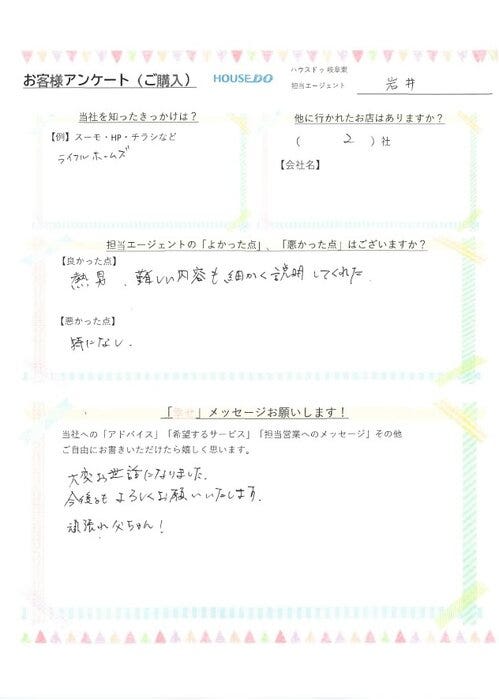 お客様アンケート（ご購入）
HOUSEDO
ハウスドゥ 岐阜東
担当エージェント 岩井
当社を知ったきっかけは？
【例】スーモ・HP・チラシなど
ライフルホームズ
他に行かれたお店はありますか？
（ 2 ）社
【会社名】
担当エージェントの「よかった点」、「悪かった点」はございますか？
【良かった点】
熱量、難しい内容も細かく説明してくれた
【悪かった点】
特になし.
「幸せ」メッセージお願いします！
当社への「アドバイス」「希望するサービス」「担当営業へのメッセージ」その他
ご自由にお書きいただけたら嬉しく思います。
大変お世話になりました.
今後もよろしくお願いいたします.
頑張れ父ちゃん！